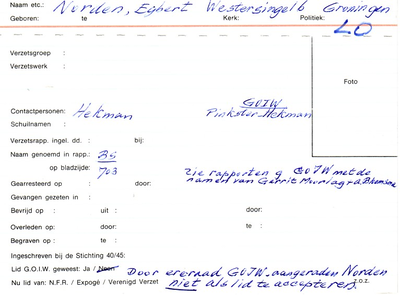 Naam etc.: Norden, Egbert Westersingel 6 Groningen
Geboren: te Kerk: Politiek:
LO
Verzetsgroep :
Verzetswerk :
Foto
GOIW
Contactpersonen: Hekman Pinkster, Hekman
Schuilnamen :
Verzetsrapp. ingel. dd. : bij:
Naam genoemd in rapp.: BS
op bladzijde: 703
zie rapporten g GOIW met de
namen van Gerrit
Gearresteerd op : door:
Gevangen gezeten in :
Bevrijd op : uit : door:
Overleden op : door: te :
Begraven op : te :
Ingeschreven bij de Stichting 40/45:
Lid G.O.I.W. geweest: Ja / Neen Door ereraad GOIW aangeraden Norden
Nu lid van: N.F.R. / Expogé / Verenigd Verzet niet als lid te accepteren. z.o.z.